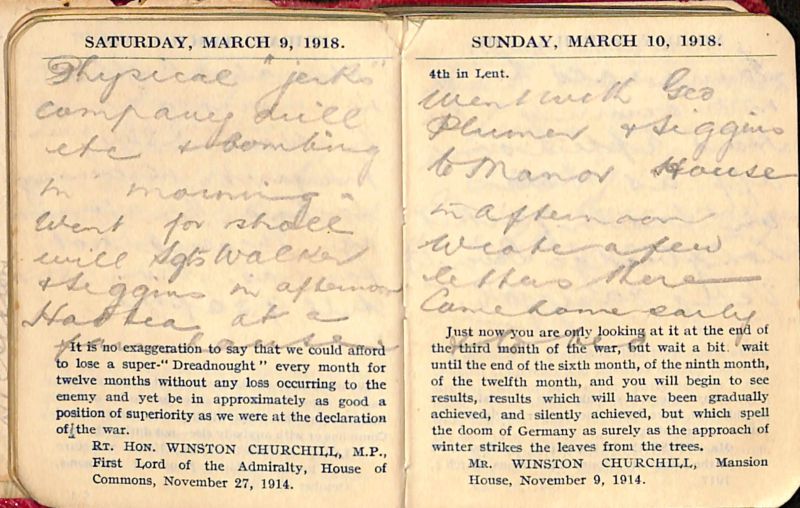 SATURDAY, MARCH 9, 1918.
Physical "jerks"
company drill
etc & bombing
in morning.
Went for stroll
will Sgts Walker
& Siggins in afternoon
Had tea at a
farm house
It is no exaggeration to say that we could afford
to lose a super-"Dreadnought" every month for
twelve months without any loss occurring to the
enemy and yet be in approximately as good a
position of superiority as we were at the declaration
of the war.
RT. HON. WINSTON CHURCHILL, M.P.,
First Lord of the Admiralty, House of
Commons, November 27, 1914.
SUNDAY, MARCH 10, 1918.
4th in Lent.
Went with Geo
Plumer & Siggins
to Manor House
in afternoon
Wrote a few
letters there
Came home early
to bed
Just now you are only looking at it at the end of
the third month of the war, but wait a bit. wait
until the end of the sixth month, of the ninth month,
of the twelfth month, and you will begin to see
results, results which will have been gradually
achieved, and silently achieved, but which spell
the doom of Germany as surely as the approach of
winter strikes the leaves from the trees.
MR. WINSTON CHURCHILL, Mansion
House, November 9, 1914.